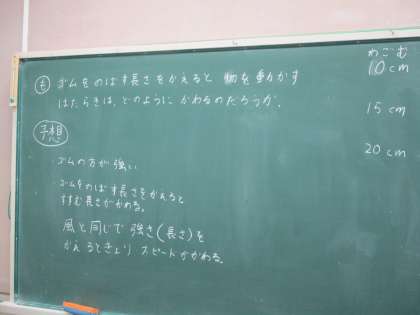 も ゴムをのばす長さをかえると 物を動かす
はたらきは、どのように かわるのだろうか。
予想
・ゴムの方が強い
・ゴムをのばす長さをかえると
すすむ長さがかわる。
風と同じで強さ(長さ)を
かえるときょり スピードがかわる。
わごむ
10cm
15cm
20cm